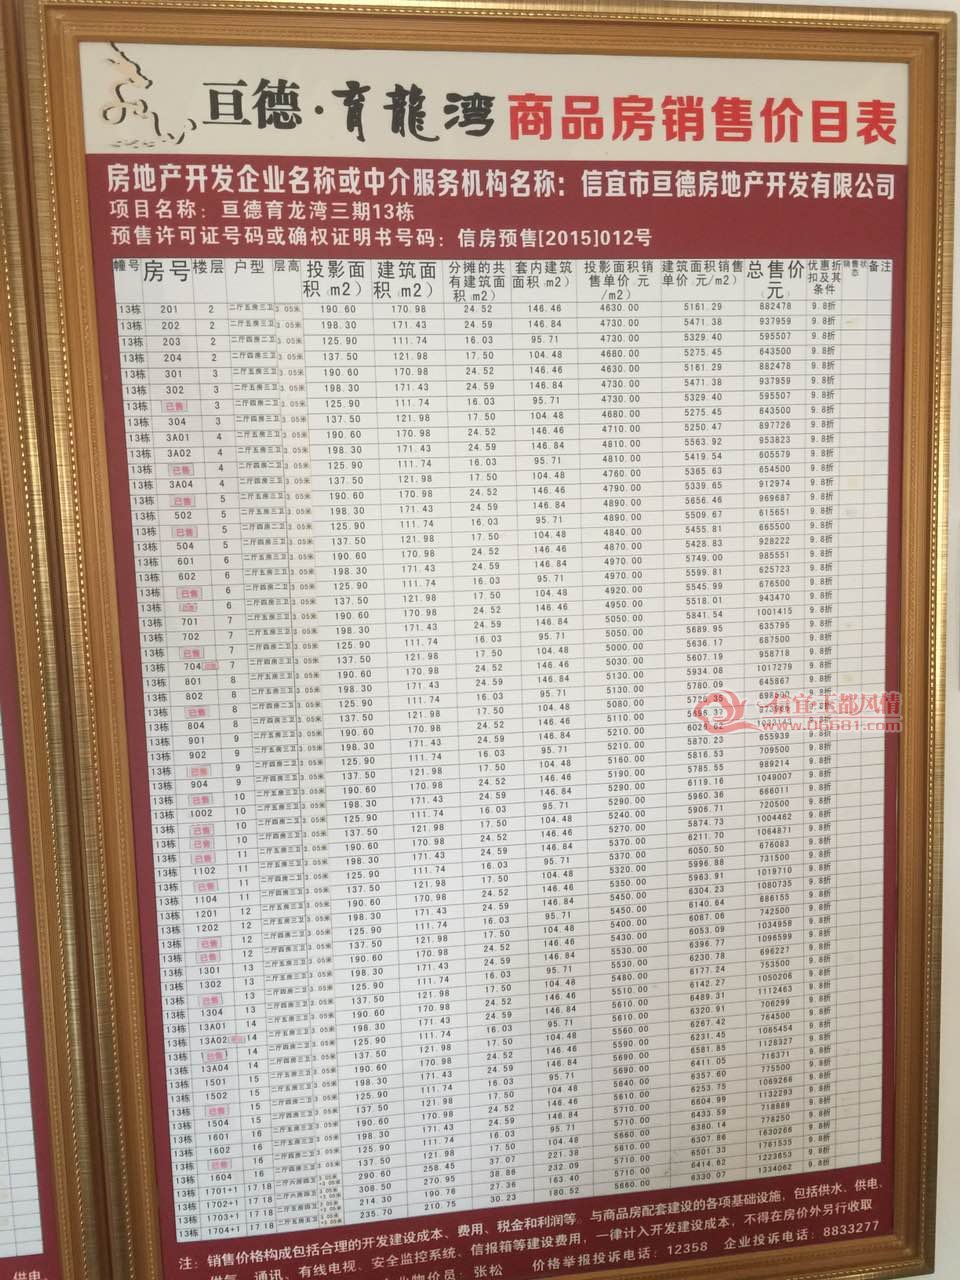 亘德·育龍湾 商品房销售价目表
房地产开发企业名称或中介服务机构名称：信宜市亘德房地产开发有限公司
项目名称：亘德育龙湾三期13栋
预售许可证号码或确权证明书号码：信房预售[2015]012号
幢号 房号 楼层 户型 层高 投影面积（m2） 建筑面积（m2） 分摊的共有建筑面积（m2） 套内建筑面积（m2） 投影面积销售单价（元/m2） 建筑面积销售单价（元/m2） 总售价（元） 优惠折扣及其条件 销售状态 备注
13栋 201 2 二厅五房三卫 3.05米 190.60 170.98 24.52 146.46 4630.00 5161.29 882478 9.8折
13栋 202 2 二厅五房三卫 3.05米 198.30 171.43 24.59 146.84 4730.00 5471.38 937959 9.8折
13栋 203 2 二厅四房二卫 3.05米 125.90 111.74 16.03 95.71 4730.00 5329.40 595507 9.8折
13栋 204 2 二厅四房三卫 3.05米 137.50 121.98 17.50 104.48 4680.00 5275.45 643500 9.8折
13栋 301 3 二厅五房三卫 3.05米 190.60 170.98 24.52 146.46 4630.00 5161.29 882478 9.8折
13栋 302 3 二厅五房三卫 3.05米 198.30 171.43 24.59 146.84 4730.00 5471.38 937959 9.8折
13栋 已售 3 二厅四房二卫 3.05米 125.90 111.74 16.03 95.71 4730.00 5329.40 595507 9.8折
13栋 304 3 二厅四房三卫 3.05米 137.50 121.98 17.50 104.48 4680.00 5275.45 643500 9.8折
13栋 3A01 4 二厅五房三卫 3.05米 190.60 170.98 24.52 146.46 4710.00 5250.47 897726 9.8折
13栋 3A02 4 二厅五房三卫 3.05米 198.30 171.43 24.59 146.84 4810.00 5563.92 953823 9.8折
13栋 已售 4 二厅四房二卫 3.05米 125.90 111.74 16.03 95.71 4810.00 5419.54 605579 9.8折
13栋 3A04 4 二厅四房三卫 3.05米 137.50 121.98 17.50 104.48 4760.00 5365.63 654500 9.8折
13栋 已售 5 二厅五房三卫 3.05米 190.60 170.98 24.52 146.46 4790.00 5339.65 912974 9.8折
13栋 502 5 二厅五房三卫 3.05米 198.30 171.43 24.59 146.84 4890.00 5656.46 969687 9.8折
13栋 已售 5 二厅四房二卫 3.05米 125.90 111.74 16.03 95.71 4890.00 5509.67 615651 9.8折
13栋 504 5 二厅四房三卫 3.05米 137.50 121.98 17.50 104.48 4840.00 5455.81 665500 9.8折
13栋 601 6 二厅五房三卫 3.05米 190.60 170.98 24.52 146.46 4870.00 5428.83 928222 9.8折
13栋 602 6 二厅五房三卫 3.05米 198.30 171.43 24.59 146.84 4970.00 5749.00 985551 9.8折
13栋 已售 6 二厅四房二卫 3.05米 125.90 111.74 16.03 95.71 4970.00 5599.81 625723 9.8折
13栋 6 二厅四房三卫 3.05米 137.50 121.98 17.50 104.48 4920.00 5545.99 676500 9.8折
13栋 701 7 二厅五房三卫 3.05米 190.60 170.98 24.52 146.46 4950.00 5518.01 943470 9.8折
13栋 702 7 二厅五房三卫 3.05米 198.30 171.43 24.59 146.84 5050.00 5841.54 1001415 9.8折
13栋 已售 7 二厅四房二卫 3.05米 125.90 111.74 16.03 95.71 5050.00 5689.95 635795 9.8折
13栋 704 7 二厅四房三卫 3.05米 137.50 121.98 17.50 104.48 5000.00 5636.17 687500 9.8折
13栋 801 8 二厅五房三卫 3.05米 190.60 170.98 24.52 146.46 5030.00 5607.19 958718 9.8折
13栋 802 8 二厅五房三卫 3.05米 198.30 171.43 24.59 146.84 5130.00 5934.08 1017279 9.8折
13栋 已售 8 二厅四房二卫 3.05米 125.90 111.74 16.03 95.71 5130.00 5780.09 645867 9.8折
13栋 804 8 二厅四房三卫 3.05米 137.50 121.98 17.50 104.48 5080.00 9.8折
13栋 901 9 二厅五房三卫 3.05米 190.60 170.98 24.52 146.46 5110.00 5696.37 9.8折
13栋 902 9 二厅五房三卫 3.05米 198.30 171.43 24.59 146.84 5210.00 6026.62 9.8折
13栋 已售 9 二厅四房二卫 3.05米 125.90 111.74 16.03 95.71 5210.00 5870.23 655939 9.8折
13栋 904 9 二厅四房三卫 3.05米 137.50 121.98 17.50 104.48 5160.00 5816.53 709500 9.8折
13栋 已售 10 二厅五房三卫 3.05米 190.60 170.98 24.52 146.46 5190.00 5785.55 989214 9.8折
13栋 1002 10 二厅五房三卫 3.05米 198.30 171.43 24.59 146.84 5290.00 6119.16 1049007 9.8折
13栋 已售 10 二厅四房二卫 3.05米 125.90 111.74 16.03 95.71 5290.00 5960.36 666011 9.8折
13栋 已售 10 二厅四房三卫 3.05米 137.50 121.98 17.50 104.48 5240.00 5906.71 720500 9.8折
13栋 已售 11 二厅五房三卫 3.05米 190.60 170.98 24.52 146.46 5270.00 5874.73 1004462 9.8折
13栋 1102 11 二厅五房三卫 3.05米 198.30 171.43 24.59 146.84 5370.00 6211.70 1064871 9.8折
13栋 已售 11 二厅四房二卫 3.05米 125.90 111.74 16.03 95.71 5370.00 6050.50 676083 9.8折
13栋 1104 11 二厅四房三卫 3.05米 137.50 121.98 17.50 104.48 5320.00 5996.88 731500 9.8折
13栋 1201 12 二厅五房三卫 3.05米 190.60 170.98 24.52 146.46 5350.00 5963.91 1019710 9.8折
13栋 1202 12 二厅五房三卫 3.05米 198.30 171.43 24.59 146.84 5450.00 6304.23 1080735 9.8折
13栋 已售 12 二厅四房二卫 3.05米 125.90 111.74 16.03 95.71 5450.00 6140.64 686155 9.8折
13栋 已售 12 二厅四房三卫 3.05米 137.50 121.98 17.50 104.48 5400.00 6087.06 742500 9.8折
13栋 1301 13 二厅五房三卫 3.05米 190.60 170.98 24.52 146.46 5430.00 6053.09 1034958 9.8折
13栋 1302 13 二厅五房三卫 3.05米 198.30 171.43 24.59 146.84 5530.00 6396.77 1096599 9.8折
13栋 已售 13 二厅四房二卫 3.05米 125.90 111.74 16.03 95.71 5530.00 6230.78 696227 9.8折
13栋 1304 13 二厅四房三卫 3.05米 137.50 121.98 17.50 104.48 5480.00 6177.24 753500 9.8折
13栋 13A01 14 二厅五房三卫 3.05米 190.60 170.98 24.52 146.46 5510.00 6142.27 1050206 9.8折
13栋 13A02 14 二厅五房三卫 3.05米 198.30 171.43 24.59 146.84 5610.00 6489.31 1112463 9.8折
13栋 已售 14 二厅四房二卫 3.05米 125.90 111.74 16.03 95.71 5610.00 6320.91 706299 9.8折
13栋 13A04 14 二厅四房三卫 3.05米 137.50 121.98 17.50 104.48 5560.00 6267.42 764500 9.8折
13栋 1501 15 二厅五房三卫 3.05米 190.60 170.98 24.52 146.46 5590.00 6231.45 1065454 9.8折
13栋 1502 15 二厅五房三卫 3.05米 198.30 171.43 24.59 146.84 5690.00 6581.85 1128327 9.8折
13栋 已售 15 二厅四房二卫 3.05米 125.90 111.74 16.03 95.71 5690.00 6411.05 716371 9.8折
13栋 1504 15 二厅四房三卫 3.05米 137.50 121.98 17.50 104.48 5640.00 6357.60 775500 9.8折
13栋 1601 16 二厅五房三卫 3.05米 190.60 170.98 24.52 146.46 5710.00 6253.75 1069266 9.8折
13栋 1602 16 二厅五房三卫 3.05米 198.30 171.43 24.59 146.84 5710.00 6604.99 1132293 9.8折
13栋 已售 16 二厅四房二卫 3.05米 125.90 111.74 16.03 95.71 5710.00 6433.59 718889 9.8折
13栋 1604 16 二厅四房三卫 3.05米 137.50 121.98 17.50 104.48 5660.00 6380.14 778250 9.8折
13栋 1701+1 17 18 290.60 258.45 37.07 221.38 5610.00 6307.86 1630266 9.8折
13栋 1702+1 17 18 308.50 270.95 38.86 232.09 5710.00 6501.33 1761535 9.8折
13栋 1703+1 17 18 214.30 190.76 27.36 163.40 5710.00 6414.62 1223653 9.8折
13栋 1704+1 17 18 235.70 210.75 30.23 180.52 5660.00 6330.07 1334062 9.8折
信宜玉都风情
www.06681.com
注：销售价格构成包括合理的开发建设成本、费用、税金和利润等。与商品房配套建设的各项基础设施，包括供水、供电、
供气、通讯、有线电视、安全监控系统、信报箱等建设费用，一律计入开发建设成本，不得在房价外另行收取
企业物价员：张松 价格举报投诉电话：12358 企业投诉电话：8833277
供电、